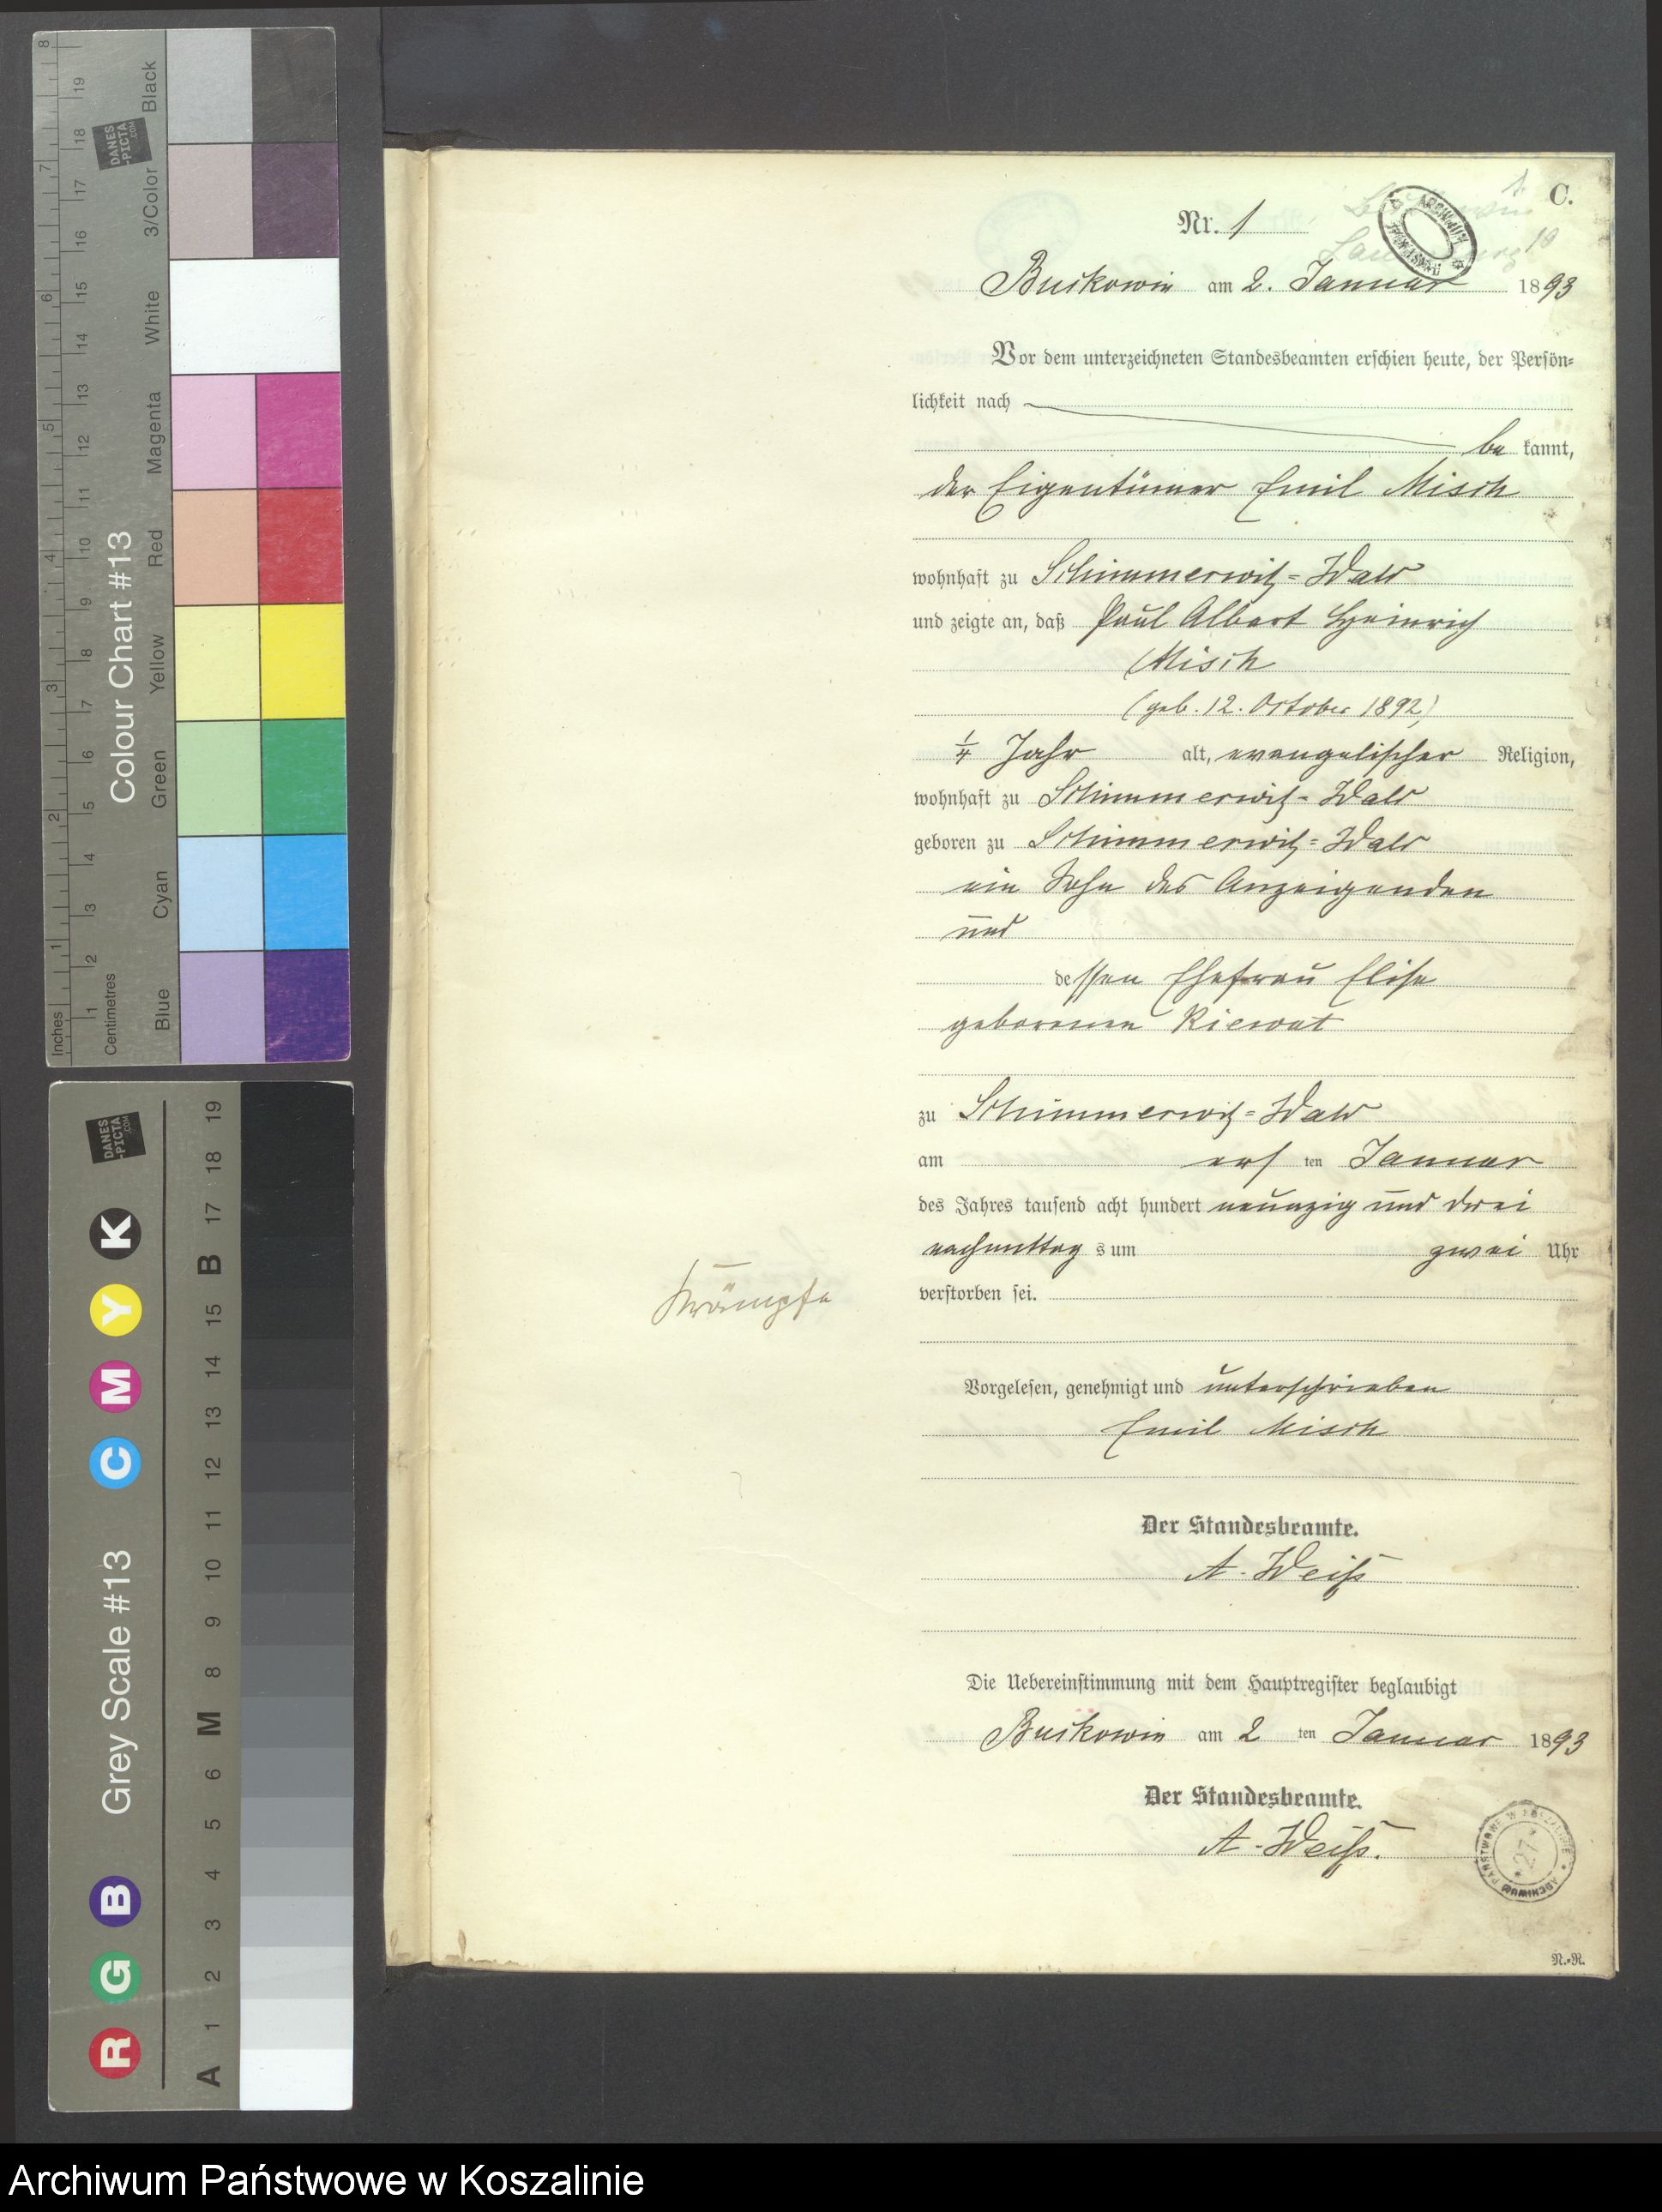 C.
Nr. 1
Buckowin am 2. Januar 1893
Vor dem unterzeichneten Standesbeamten erschien heute, der Persön-
lichkeit nach
be kannt,
der Eigentümer Emil Misch
wohnhaft zu Schimmerwitz-Wald
und zeigte an, daß Paul Albert Heinrich
Misch
(geb. 12. October 1892)
1/4 Jahr alt, evangelischer Religion,
wohnhaft zu Schimmerwitz-Wald
geboren zu Schimmerwitz-Wald
ein Sohn des Anzeigenden
und
dessen Ehefrau Elise
geborenen
zu Schimmerwitz-Wald
am ersten Januar
des Jahres tausend acht hundert neunzig und drei
nachmittags um zwei Uhr
verstorben sei.
Krämpfe
Vorgelesen, genehmigt und unterschrieben
Emil Misch
Der Standesbeamte.
A. Weiß
Die Uebereinstimmung mit dem Hauptregister beglaubigt
Buckowin am 2 ten Januar 1893
Der Standesbeamte.
A. Weiß.
27
N.-R.
Inches
Centimetres
Colour Chart #13
Blue
Cyan
Green
Yellow
Red
Magenta
White
3/Color
Black
DANES
-PICTA
.COM
Grey Scale #13
R G B C M Y K
A 1 2 3 4 5 6 M 8 9 10 11 12 13 14 15 B 17 18 19
DANES
-PICTA
.COM
Archiwum Państwowe w Koszalinie